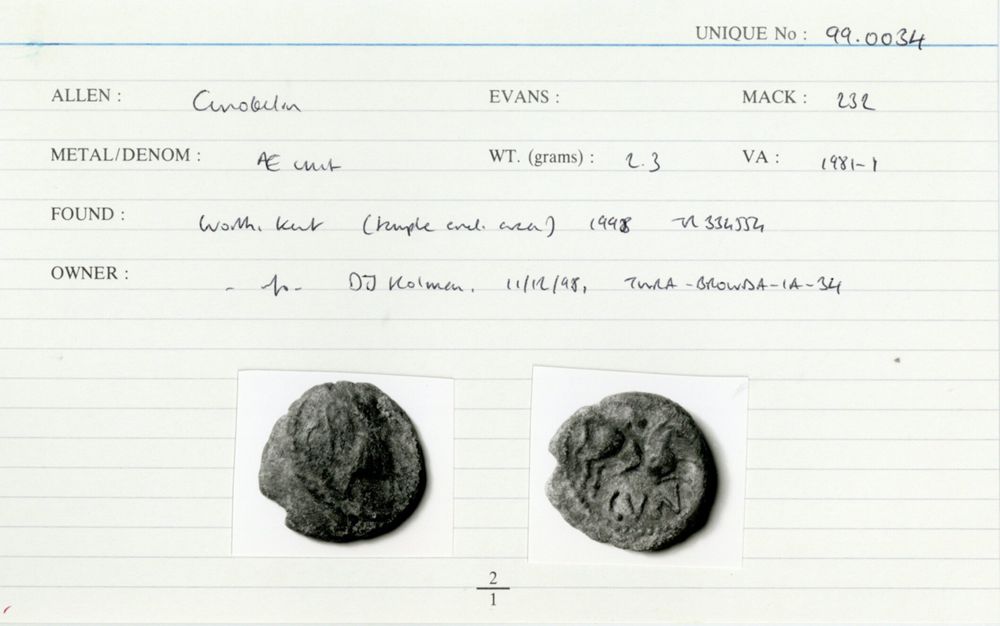 UNIQUE No : 99.0034
ALLEN : Cunobelin EVANS : MACK : 232
METAL/DENOM : Æ unit WT. (grams) : 2.3 VA : 1981-1
FOUND : Worth, Kent (temple encl. area) 1998 TR 334554
OWNER : DJ Holman, 11/12/98, -IA-34
CVN
2
1